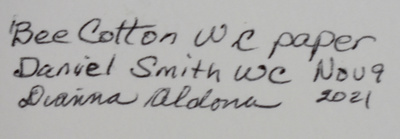 Bee Cotton WC paper
Daniel Smith WC Nov 9
Dianna Aldona 2021